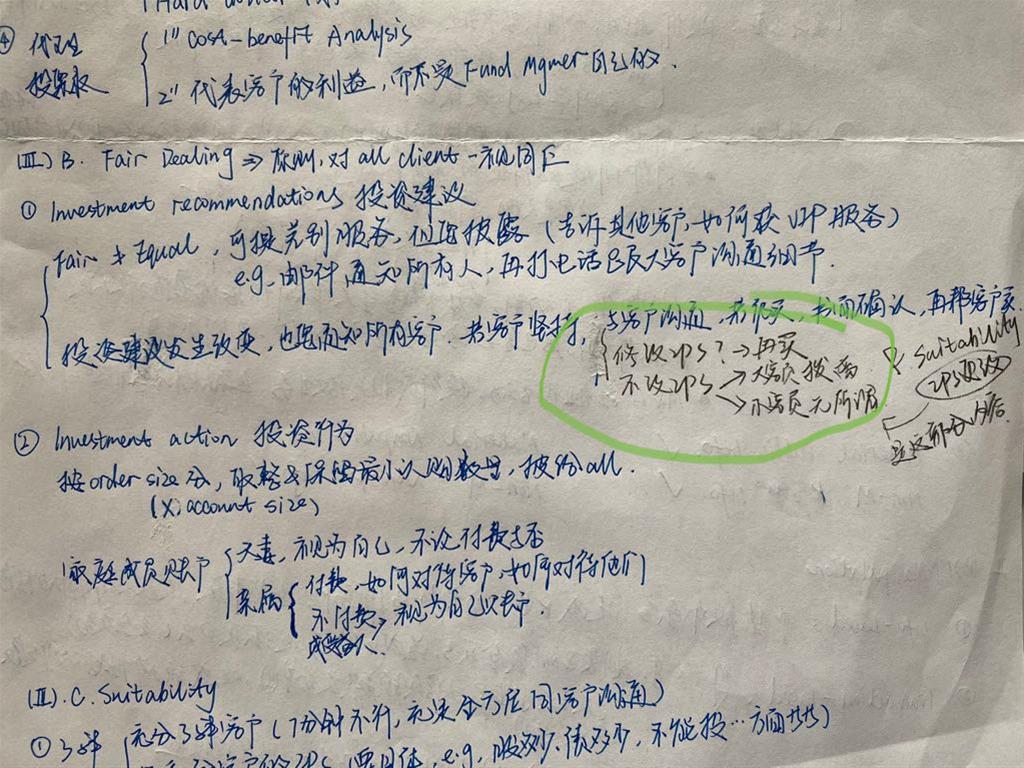 ④ 代理 { 1" cost-benefit Analysis
投票权 2" 代表客户的利益，而不是Fund Mgmer自己的.
(Ⅲ) B. Fair Dealing ⇒ 原则，对 all client 一视同仁
① Investment recommendations 投资建议
Fair ≠ Equal，可提差别服务，但需披露（告诉其他客户，如何获VIP服务）
e.g, 邮件通知所有人，再打电话跟大客户沟通细节.
投资建议发生改变，也需通知所有客户. 若客户坚持，与客户沟通，若仍买，书面确认，再帮客户买
修改IPS? → 再买
不改IPS → 大客户
→ 小 无所谓
Suitability
IPS
② Investment action 投资行为
按order size分，取整&保留最小认购数量，披露all.
(X) account size)
家庭成员账户 { 夫妻，视为自己，不论付款与否
亲属 { 付款，如何对待客户，如何对待他们
不付款，视为自己账户.
成受益人
(Ⅲ). C. Suitability
① 了解 充分了解客户（7分钟不行，充
e.g, 股多少，债多少，不能投…方面